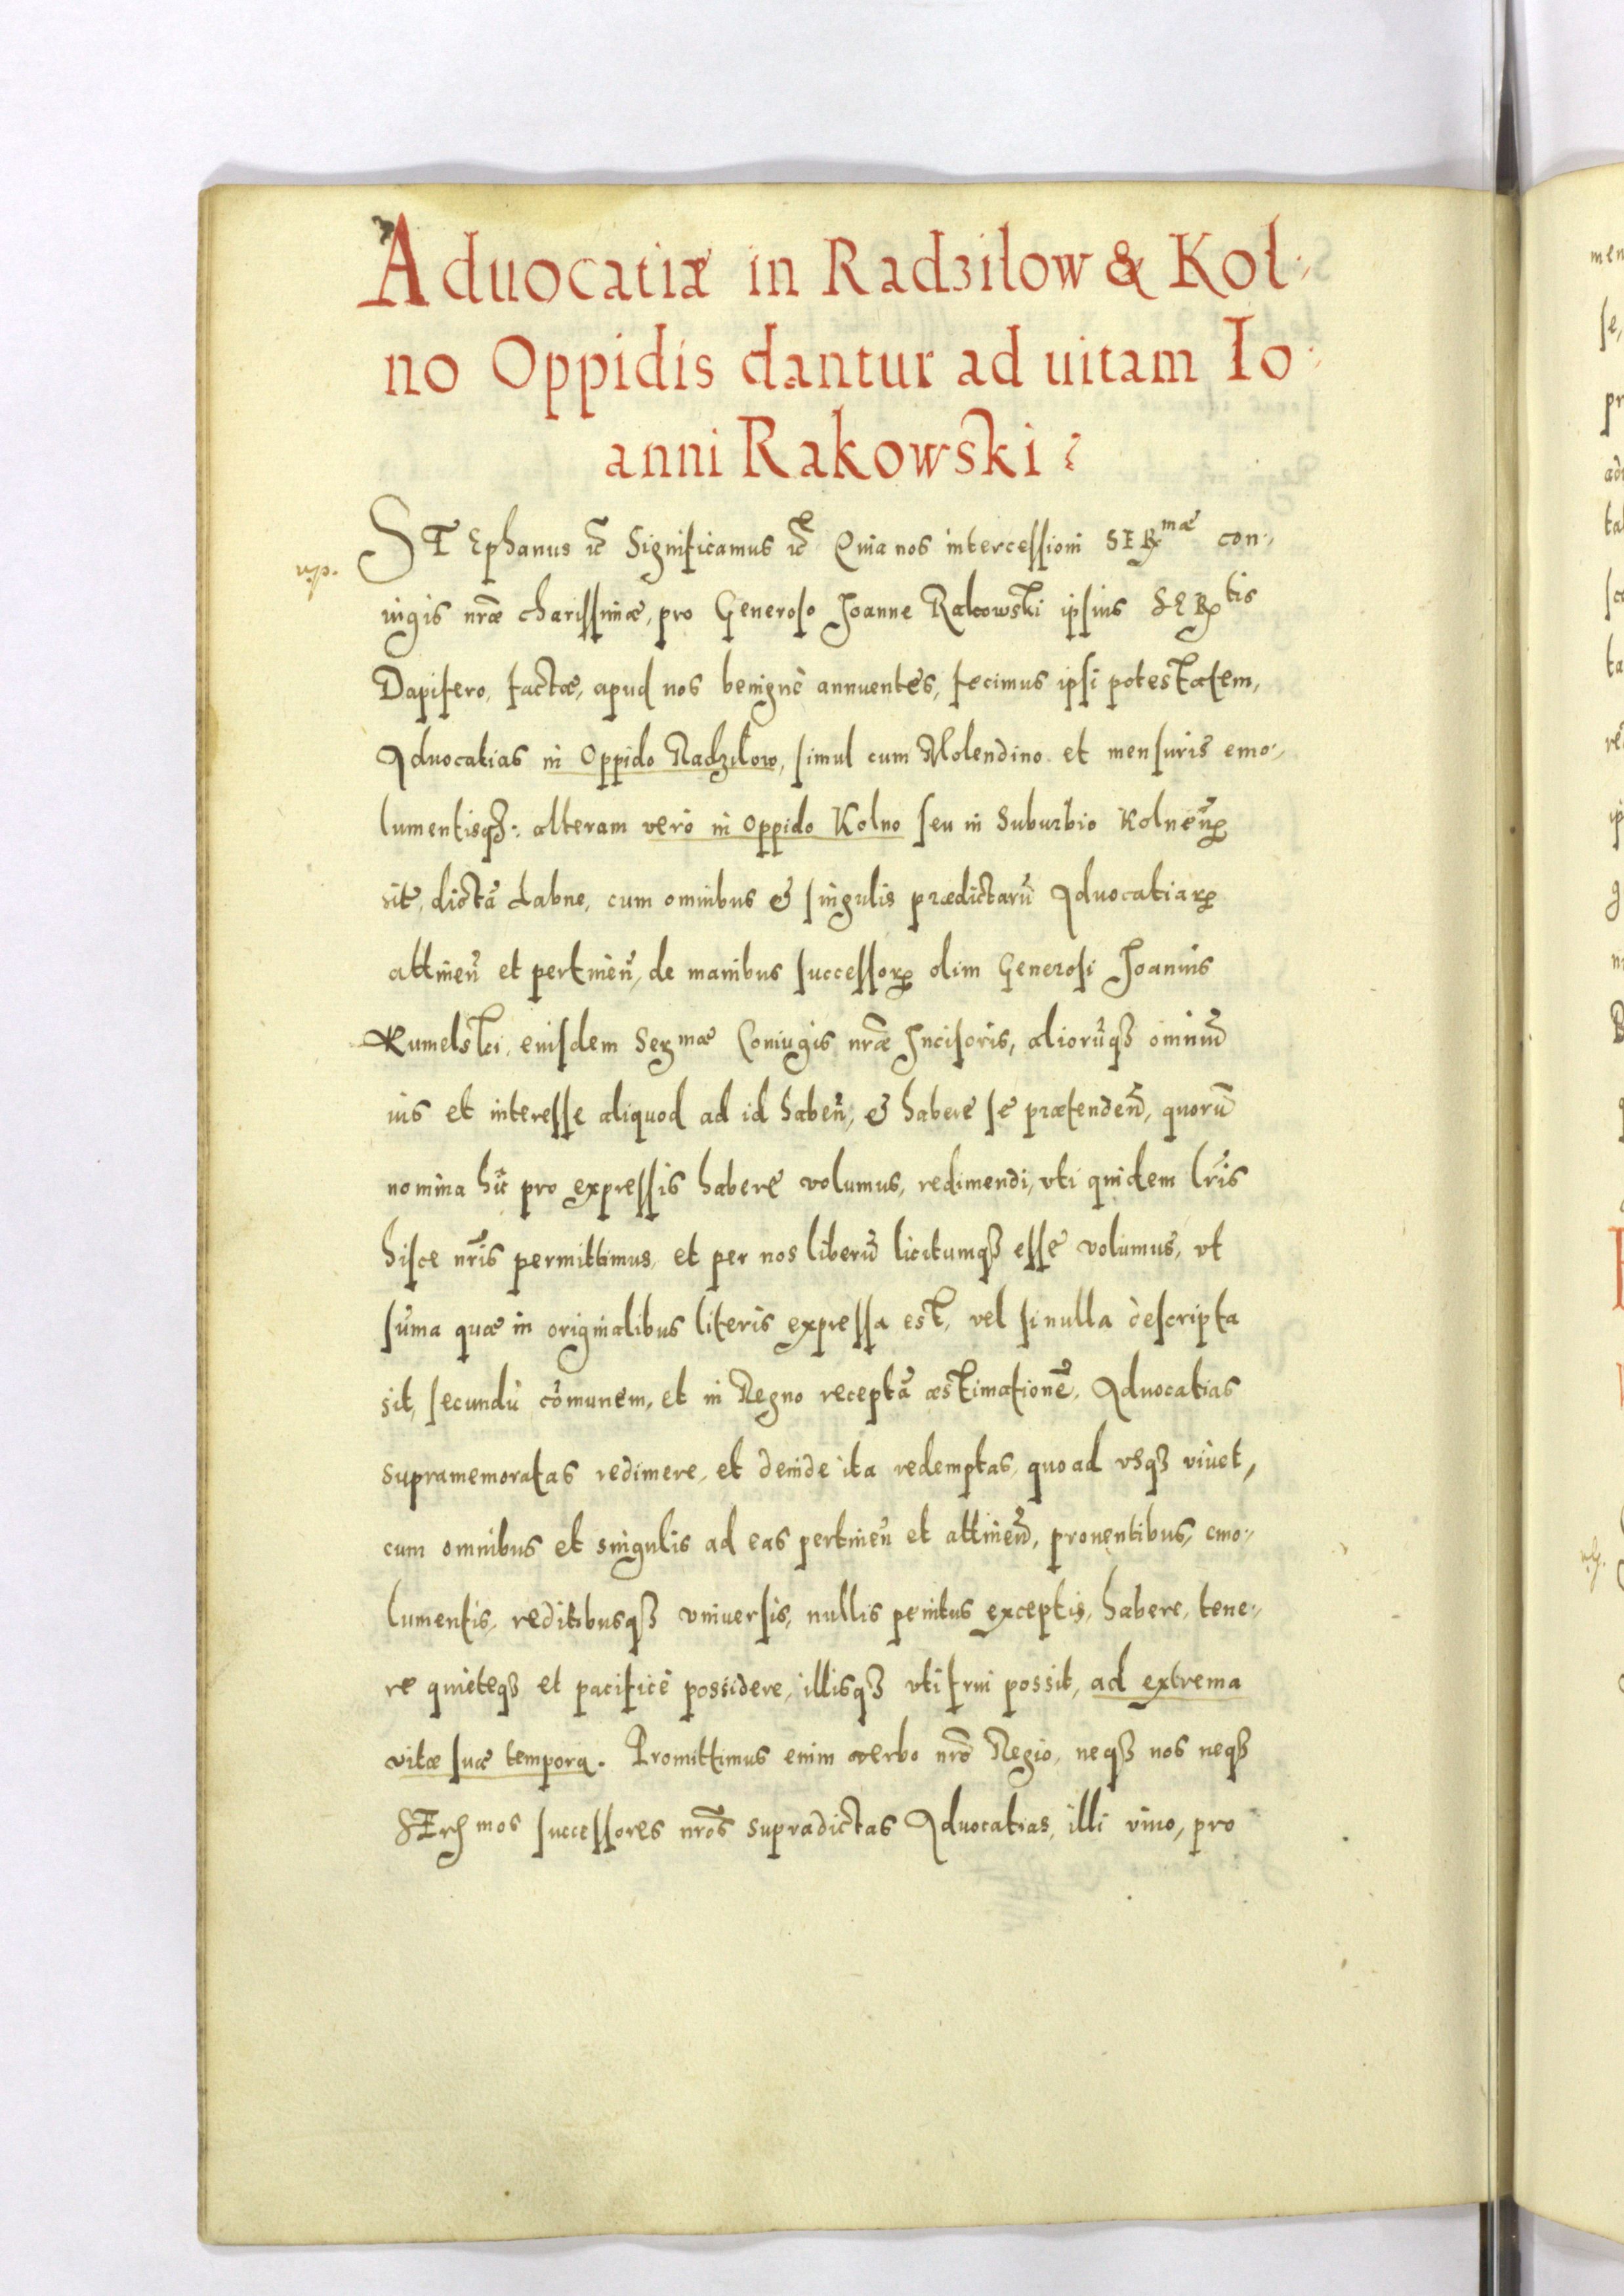 Aduocatiæ in Radziłow & Kol:
no Oppidis dantur ad uitam Io:
anni Rakowski
STEphanus ɾc̃ Significamus ɾc̃ Quia nos intercessioni SERmæ con:
iugis nrãe charissimæ, pro Generoso Joanne Rakowski ipsius SERtis
Dapifero, factæ, apud nos benignè annuentes, fecimus ipsi potestatem,
Aduocatias in Oppido Radzilow, simul cum Molendino et mensuris emo:
lumentisqȝ: alteram verò in Oppido Kolno seu in Suburbio Kolneñ
sit, dictã Łabne, cum omnibus & singulis prædictarũ Aduocatiarꝝ
attineñ et pertineñ, de manibus successorꝝ olim Generosi Joannis
Kumelski, eiusdem Sermæ Coniugis nrãe Incisoris, aliorũqȝ omniũ
ius et interesse aliquod ad id habeñ, & habere se prætendeñ, quorũ
nomina hĩc pro expressis habere volumus, redimendi, vti quidem lrĩs
hisce nrĩs permittimus, et per nos liberũ licitumqȝ esse volumus, vt
sũma quæ in originalibus literis expressa est, vel si nulla descripta
sit, secundũ cõmunem, et in Regno receptã æstimationẽ, Aduocatias
supramemoratas redimere, et deinde ita redemptas, quoad vsqȝ viuet,
cum omnibus et singulis ad eas pertineñ et attineñ, prouentibus, emo:
lumentis, reditibusqȝ vniuersis, nullis penitus exceptis, habere, tene:
re quietèqȝ et pacificè possidere, illisqȝ vti frui possit, ad extrema
vitæ suæ tempora. Promittimus enim verbo nrõ Regio, neqȝ nos neqȝ
SERmos successores nrõs supradictas Aduocatias, illi viuo, pro